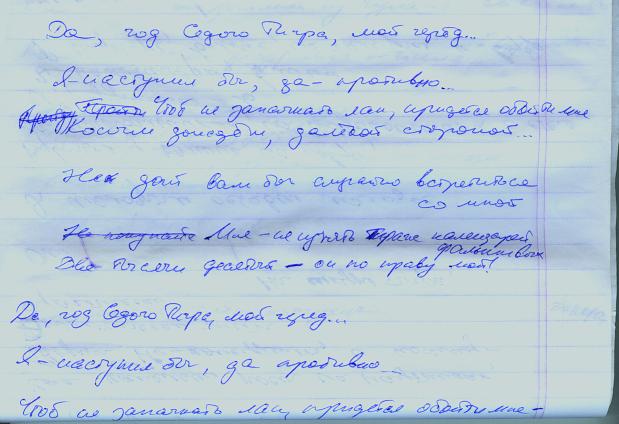 Да, год Седого Тигра, мой черёд...
Я-наступил бы, да-противно...
Чтоб не запачкать лап, придётся обойти мне
Косые дождевые, далёкой стороной...
Не дай Вам бы случайно встретиться
со мной
Не покупайте Мне-не нужать календарей
фальшивых
Две тысячи десятый - он по праву мой!
Да, год Седого Тигра, мой черёд...
Я-наступил бы, да противно...
Чтоб не запачкать лап, придётся обойти мне-